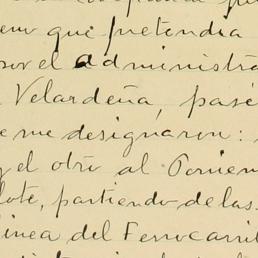 em que pretendia
por el administra
Velardeña, pasé
e me designaron:
y el otro al Ponien
lote, partiendo de las
linea del Ferrocarril